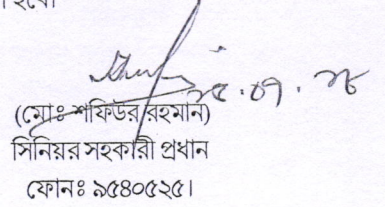 হবে।
(মোঃ শফিউর রহমান)
সিনিয়র সহকারী প্রধান
ফোনঃ ৯৫৪০৫২৫।